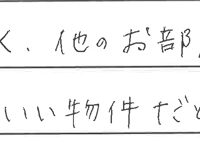 く、他のお部
いい物件だと